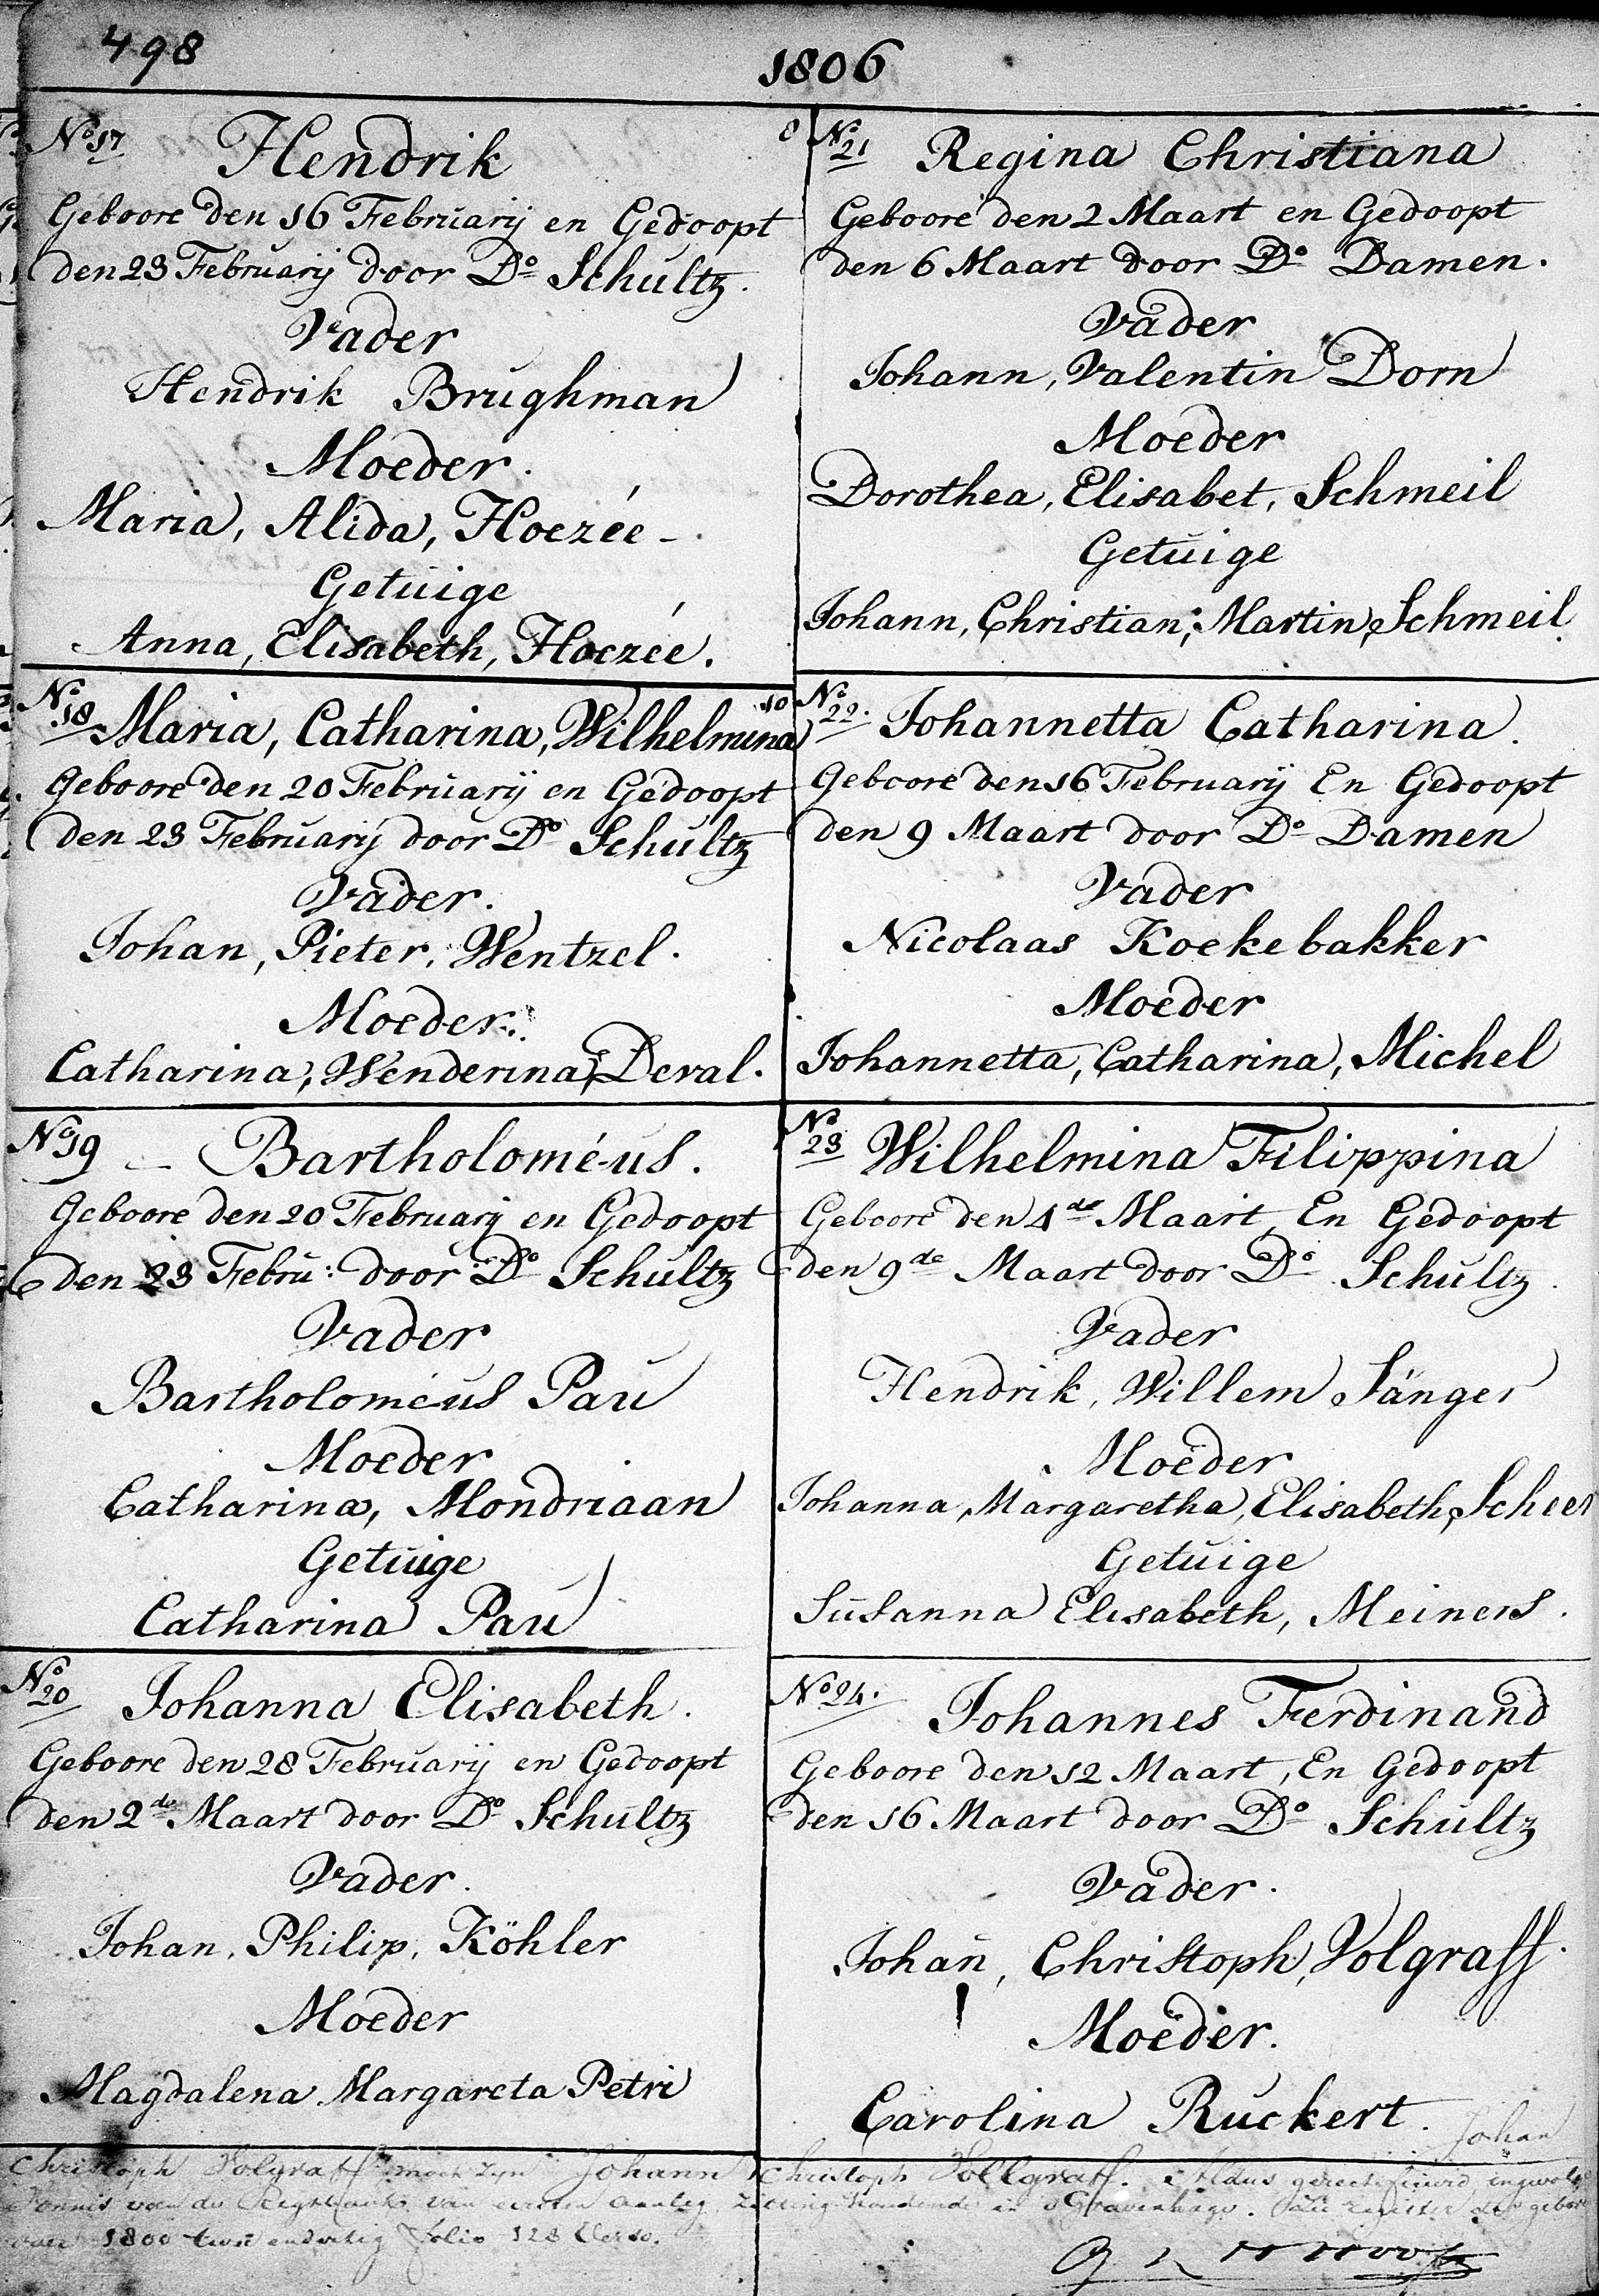 498
1806
No 17 Hendrik
Geboore den 16 February en Gedoopt
den 23 February door Do Schultz.
Vader
Hendrik Brughman
Moeder.
Maria, Alida, Hoezée
Getuige
Anna, Elisabeth, Hoezée.
No 18 Maria, Catharina, Wilhelmina
Geboore den 20 February en Gedoopt
den 23 February door Do Schultz
Vader.
Johan, Pieter, Wentzel.
Moeder.
Catharina, Wenderina, Deval.
No 19 Bartholomé-us.
Geboore den 20 February en Gedoopt
den 23 Febru: door Do Schultz
Vader
Bartholomé-us Pau
Moeder
Catharina, Mondriaan
Getuige
Catharina Pau
No 20 Johanna Elisabeth.
Geboore den 28 February en Gedoopt
den 2de Maart door Do Schultz
Vader.
Johan, Philip, Köhler
Moeder
Magdalena Margareta Petri
8
No 21 Regina Christiana
Geboore den 2 Maart en Gedoopt
den 6 Maart door Do Damen.
Vader
Johann, Valentin Dorn
Moeder
Dorothea, Elisabet, Schmeil
Getuige
Johann, Christian, Martin, Schmeil
10
No 22. Johannetta Catharina.
Geboore den 16 February En Gedoopt
den 9 Maart door Do Damen
Vader
Nicolaas Koekebakker
Moeder
Johannetta, Catharina, Michel
No 23 Wilhelmina Filippina
Geboore den 4de Maart, En Gedoopt
den 9de Maart door Do Schultz.
Vader
Hendrik, Willem Sänger
Moeder
Johanna, Margaretha, Elisabeth, Scheer
Getuige
Susanna Elisabeth, Meiners.
No 24. Johannes Ferdinand
Geboore den 12 Maart, En Gedoopt
den 16 Maart door Do Schultz
Vader.
Johan, Christoph, Volgraff.
Moeder.
Carolina Ruckert.
Johan
Christoph Volgraff moet zyn Johann Christoph Vollgraff. Aldus gerectificeerd, ingevolge
Vonnis van de Regtbank van eersten aanleg, Zitting houdende in 's Gravenhage.
1800 twee en dertig Folio 128 Verso.